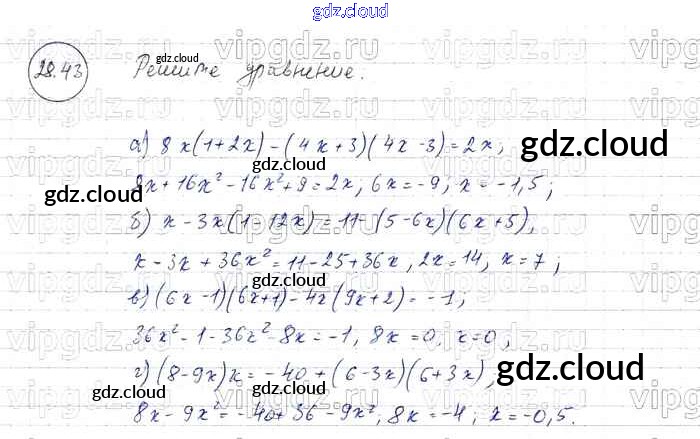 gdz.cloud
28.43 Решите уравнение.
gdz.cloud
а) 8x(1+2x)-(4x+3)(4x-3)=2x;
gdz.cloud
gdz.cloud
8x+16x²-16x²+9=2x; 6x=-9; x=-1,5;
gdz.cloud
б) x-3x(1-12x)=11-(5-6x)(6x+5),
gdz.cloud
x-3x+36x²=11-25+36x, 2x=14, x=7;
gdz.cloud
в) (6x-1)(6x+1)-4x(9x+2)=-1;
36x²-1-36x²-8x=-1, 8x=0, x=0;
gdz.cloud
г) (8-9x)x=-40+(6-3x)(6+3x),
gdz.cloud
gdz.cloud
8x-9x²=-40+36-9x²; 8x=-4; x=-0,5.
vipgdz.ru